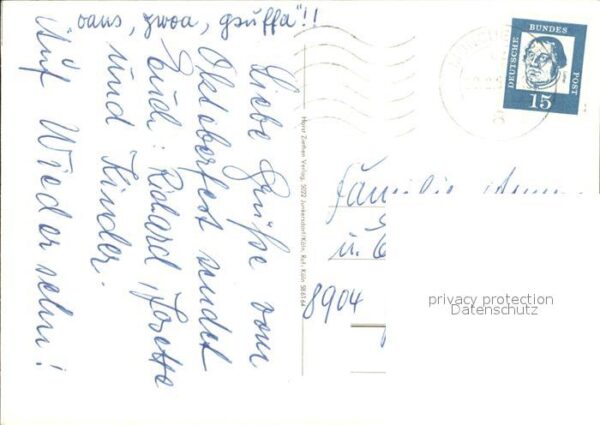 oans, zwoa, gsuffa"!!
Liebe Grüße vom
Oktoberfest sendet
Euch: Richard, Josette
und Kinder.
Auf Wieder sehn!
Horst Ziethen Verlag, 5022 Junkersdorf/Köln, Ruf: Köln 58 61 64
DEUTSCHE
BUNDES
POST
15
Familie
u.
8904
privacy protection
Datenschutz